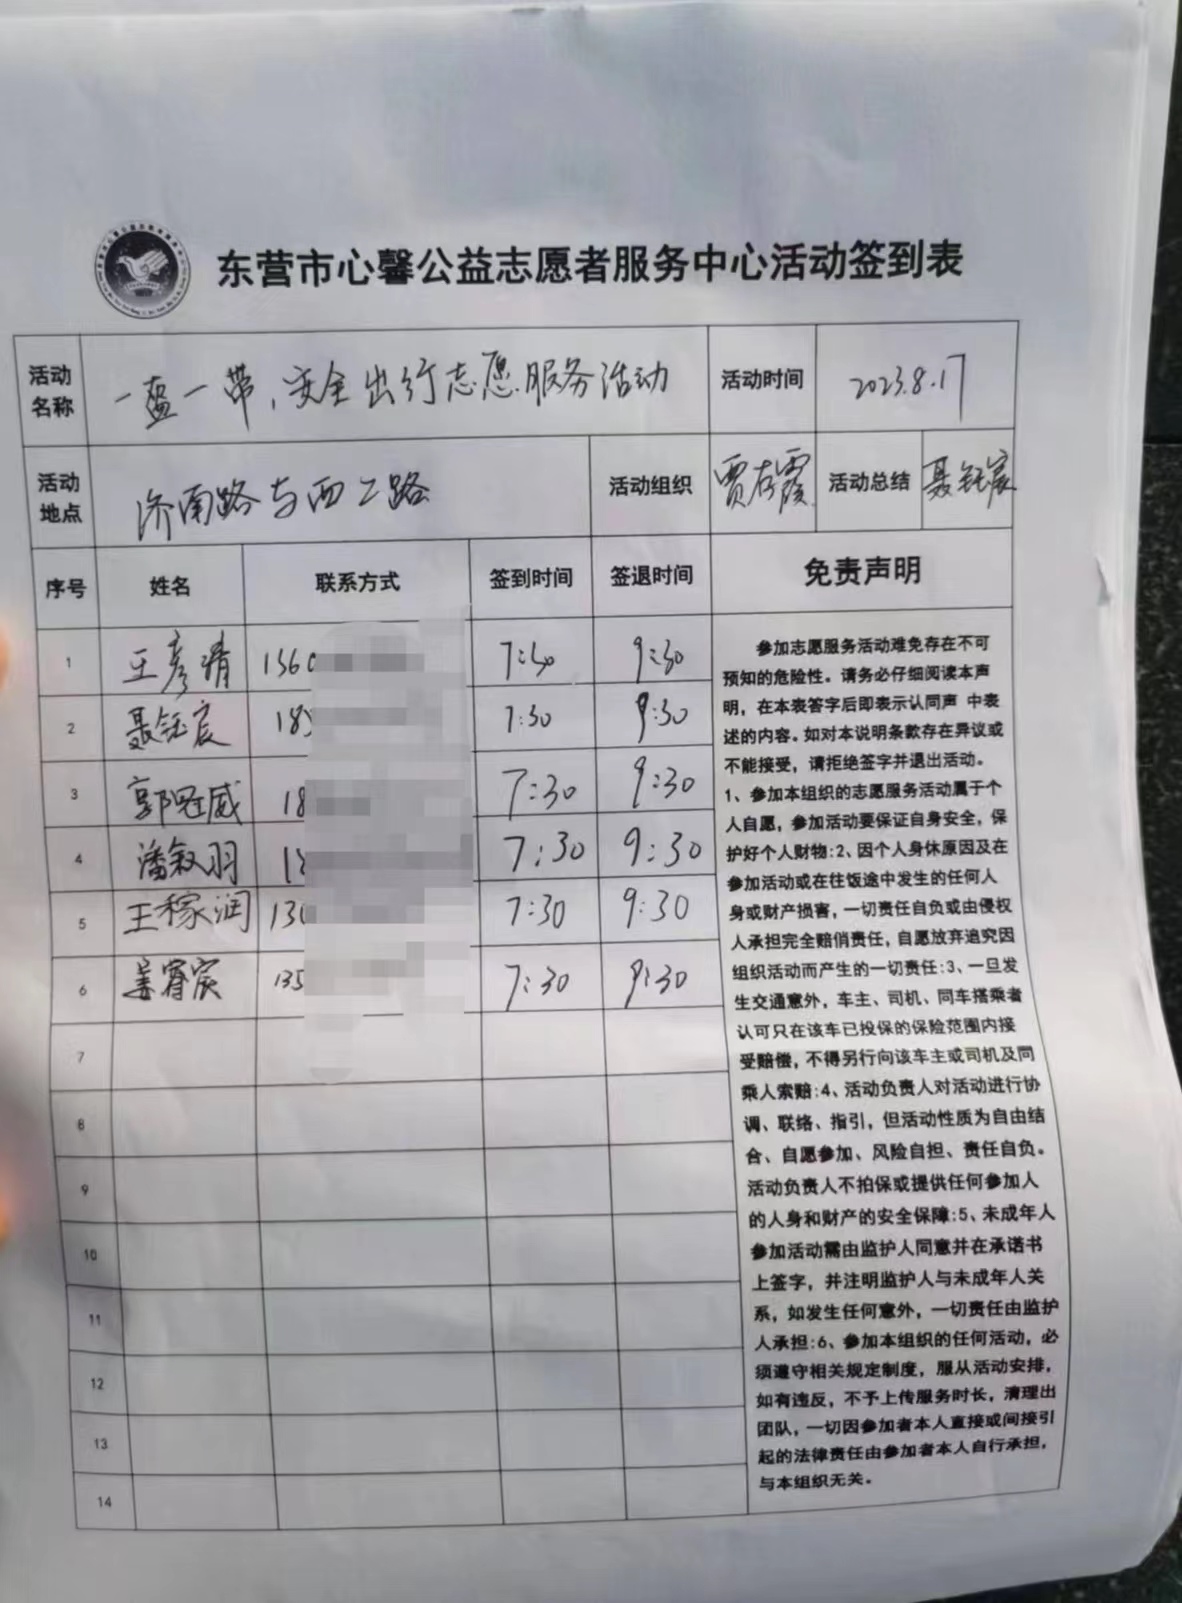 东营市心馨公益志愿者服务中心活动签到表
活动名称 一盔一带,安全出行志愿服务活动 活动时间 2023.8.17
活动地点 济南路与西二路 活动组织 贾存霞 活动总结 聂钰宸
序号 姓名 联系方式 签到时间 签退时间 免责声明
1 王彦清 1360 7:30 9:30
2 聂钰宸 185 7:30 9:30
3 郭冠威 18 7:30 9:30
4 潘叙羽 7:30 9:30
5 王稼润 130 7:30 9:30
6 姜睿宸 135 7:30 9:30
7
8
9
10
11
12
13
14
参加志愿服务活动难免存在不可
预知的危险性。请务必仔细阅读本声
明,在本表答字后即表示认同声 中表
述的内容。如对本说明条款存在异议或
不能接受,请拒绝签字并退出活动。
1、参加本组织的志愿服务活动属于个
人自愿,参加活动要保证自身安全,保
护好个人财物:2、因个人身休原因及在
参加活动或在往饭途中发生的任何人
身或财产损害,一切责任自负或由侵权
人承担完全赔俏责任,自愿放弃追究因
组织活动而产生的一切责任:3、一旦发
生交通意外,车主、司机、同车搭乘者
认可只在该车已投保的保险范围内接
受赔偿,不得另行向该车主或司机及同
乘人索赔:4、活动负责人对活动进行协
调、联络、指引,但活动性质为自由结
合、自愿参加、风险自担、责任自负。
活动负责人不拍保或提供任何参加人
的人身和财产的安全保障:5、未成年人
参加活动需由监护人同意并在承诺书
上签字,并注明监护人与未成年人关
系,如发生任何意外,一切责任由监护
人承担:6、参加本组织的任何活动,必
须遵守相关规定制度,服从活动安排,
如有违反,不予上传服务时长,清理出
团队,一切因参加者本人直接或间接引
起的法律责任由参加者本人自行承担,
与本组织无关。